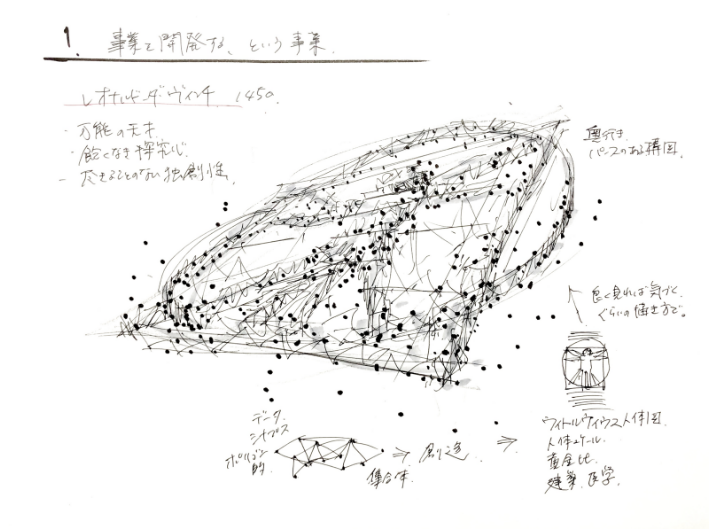 1. 事業を開発する、という事業.
レオナルド・ダ・ヴィンチ 1450.
・万能の天才.
・飽くなき探究心.
- 尽きることのない独創性.
奥行き.
パースのある構図.
良く見れば気づく.
ぐらいの描き方で.
データ.
シナプス
ポリゴン
的
集合体.
⇒ 創造. ⇒
ウィトルウィウス人体図.
人体スケール.
黄金比.
建築. 医学.